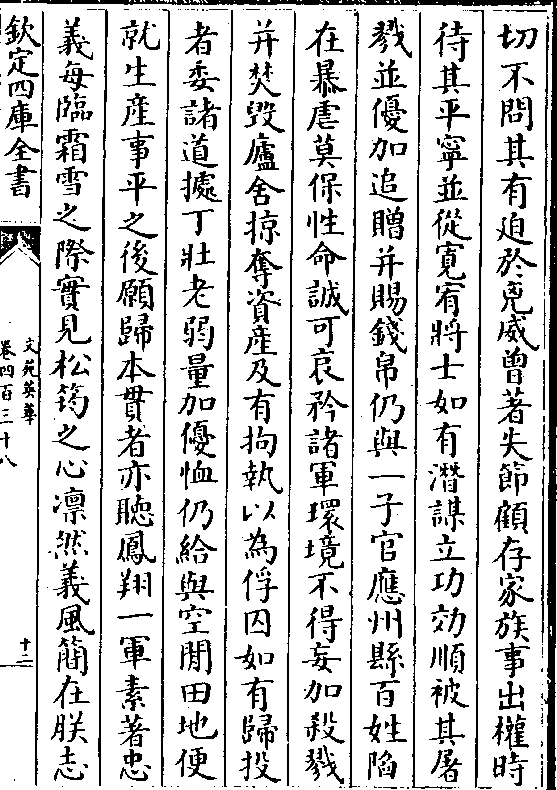 切不問其有迫於兇威曾著失節顧存家族事出權時
待其平寧並從寬宥將士如有潛謀立功効順被其屠
戮並優加追贈并賜錢帛仍與一子官應州縣百姓陷
在暴虐莫保性命誠可哀矜諸軍環境不得妄加殺戮
并焚毀廬舍掠奪資產及有拘執以為俘囚如有歸投
者委諸道據丁壯老弱量加優恤仍給與空閒田地便
就生產事平之後願歸本貫者亦聽鳳翔一軍素著忠
義每臨霜雪之際實見松筠之心凛然義風簡在朕志
欽定四庫全書
文苑英華
卷四百三十八
十三